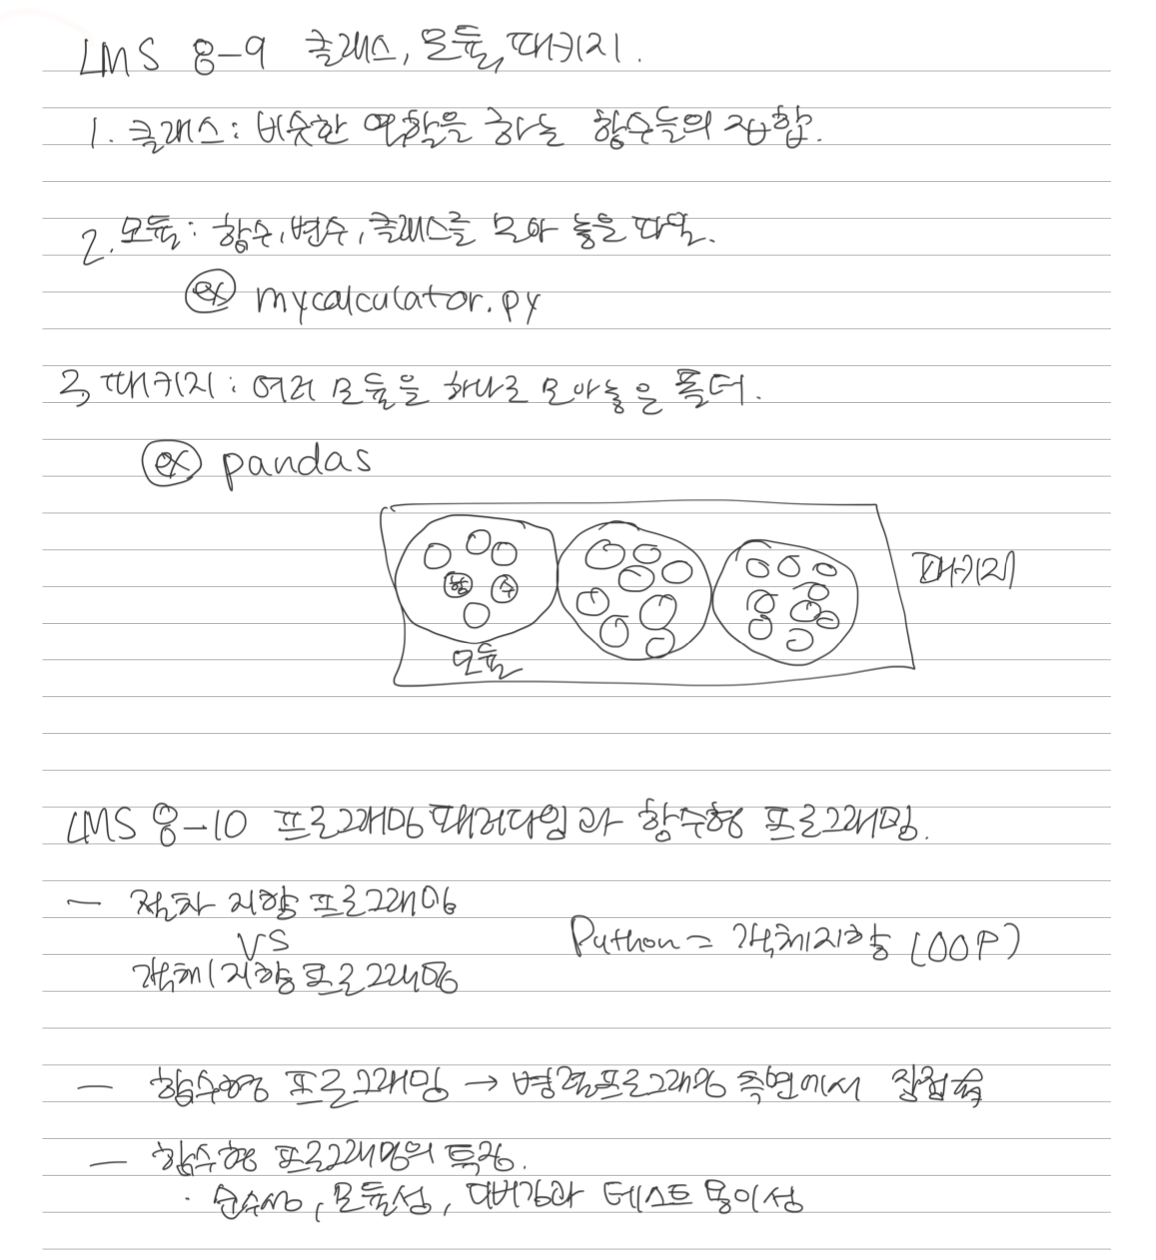 LMS 8-9 클래스, 모듈, 패키지.
1. 클래스 : 비슷한 역할을 하는 함수들의 집합.
2. 모듈 : 함수, 변수, 클래스를 모아 놓은 파일.
ex mycalculator.py
3, 패키지 : 여러 모듈을 하나로 모아놓은 폴더.
ex pandas
함 수
패키지
모듈
LMS 8-10 프로그래밍 패러다임과 함수형 프로그래밍.
- 절차 지향 프로그래밍
VS
객체지향 프로그래밍
Python = 객체지향 (OOP)
- 함수형 프로그래밍 → 병렬프로그래밍 측면에서 각점육
- 함수형 프로그래밍의 특징.
· 순수성, 모듈성, 디버깅과 테스트 용이성